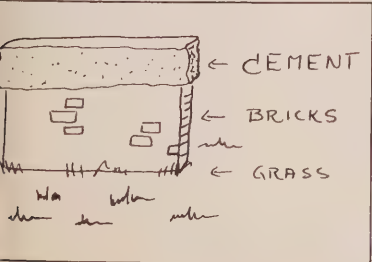 CEMENT
BRICKS
GRASS